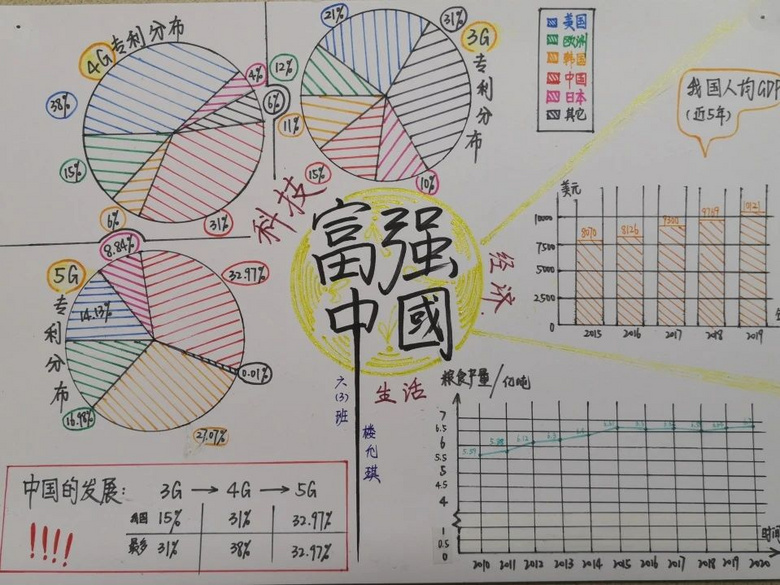 4G专利分布
38%
4%
6%
31%
6%
15%
3G专利分布
21%
31%
10%
15%
11%
12%
美国
欧洲
韩国
中国
日本
其它
我国人均GDP
(近5年)
科技
富强
中國
经济
生活
六(3)班
楼允琪
5G专利分布
8.84%
32.97%
0.01%
27.07%
16.98%
14.13%
美元
10000
7500
5000
2500
0
8070
8126
9300
9769
10121
2015 2016 2017 2018 2019
粮食产量/亿吨
7
6.5
6
5.5
5
4.5
4
1
0.5
0
5.59
5.88
6.12
2010 2011 2012 2013 2014 2015 2016 2017 2018 2019 2020
时间
中国的发展: 3G→4G→5G
我国 15% 31% 32.97%
最多 31% 38% 32.97%
!!!!